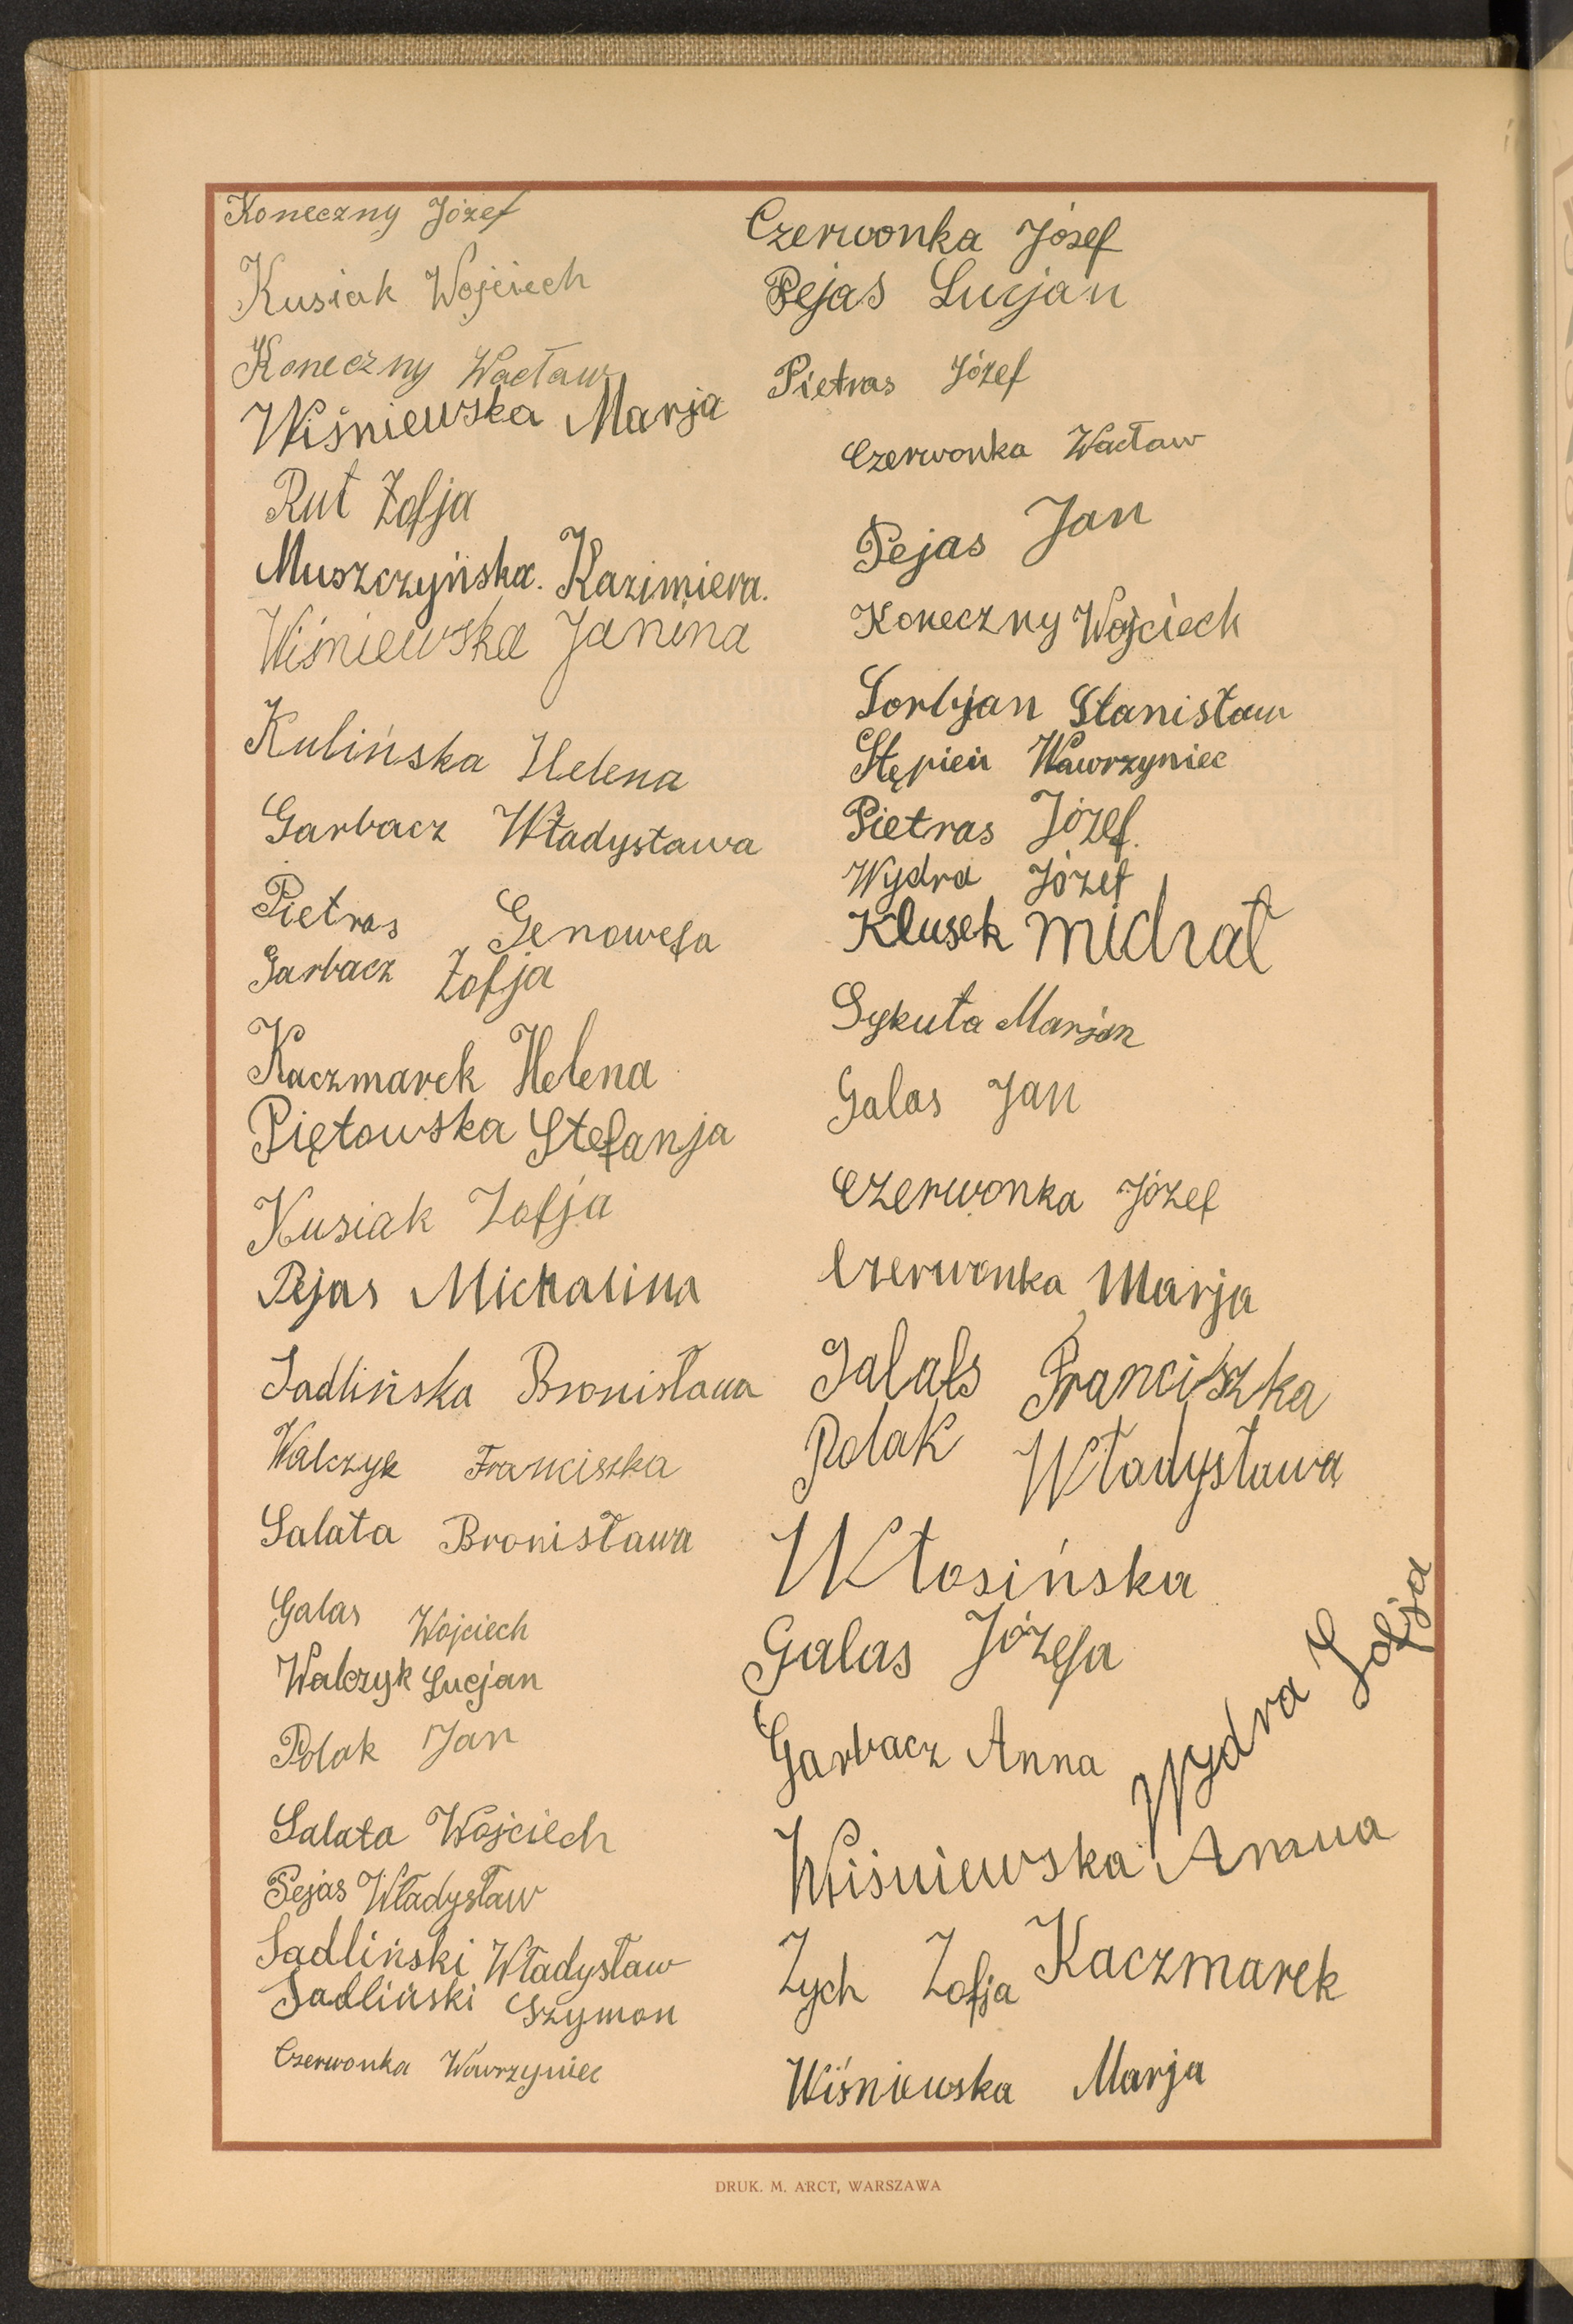 Koneczny Józef
Kusiak Wojciech
Koneczny Wacław
Wiśniewska Marja
Rut Zofja
Muszczyńska. Kazimiera.
Wiśniewska Janina
Kulińska Helena
Garbacz Władysława
Pietras Genowefa
Garbacz Zofja
Kaczmarek Helena
Piętowska Stefanja
Kusiak Zofja
Pejas Michalina
Sadlińska Bronisława
Walczyk Franciszka
Salata Bronisława
Galas Wojciech
Walczyk Lucjan
Polak Jan
Salata Wojciech
Pejas Władysław
Sadliński Władysław
Sadliński Szymon
Czerwonka Wawrzyniec
Czerwonka Józef
Pejas Lucjan
Pietras Józef
Czerwonka Wacław
Pejas Jan
Koneczny Wojciech
Sorbjan Stanisław
Stępień Wawrzyniec
Pietras Józef.
Wydra Józef
Klusek michał
Sykuta Marjan
Galas Jan
Czerwonka Józef
Czerwonka Marja
Galas Franciszka
Polak Władysława
Włosińska
Galas Józefa
Garbacz Anna
Wydra Zofja
Wiśniewska Anna
Zych Zofja Kaczmarek
Wiśniewska Marja
DRUK. M. ARCT, WARSZAWA